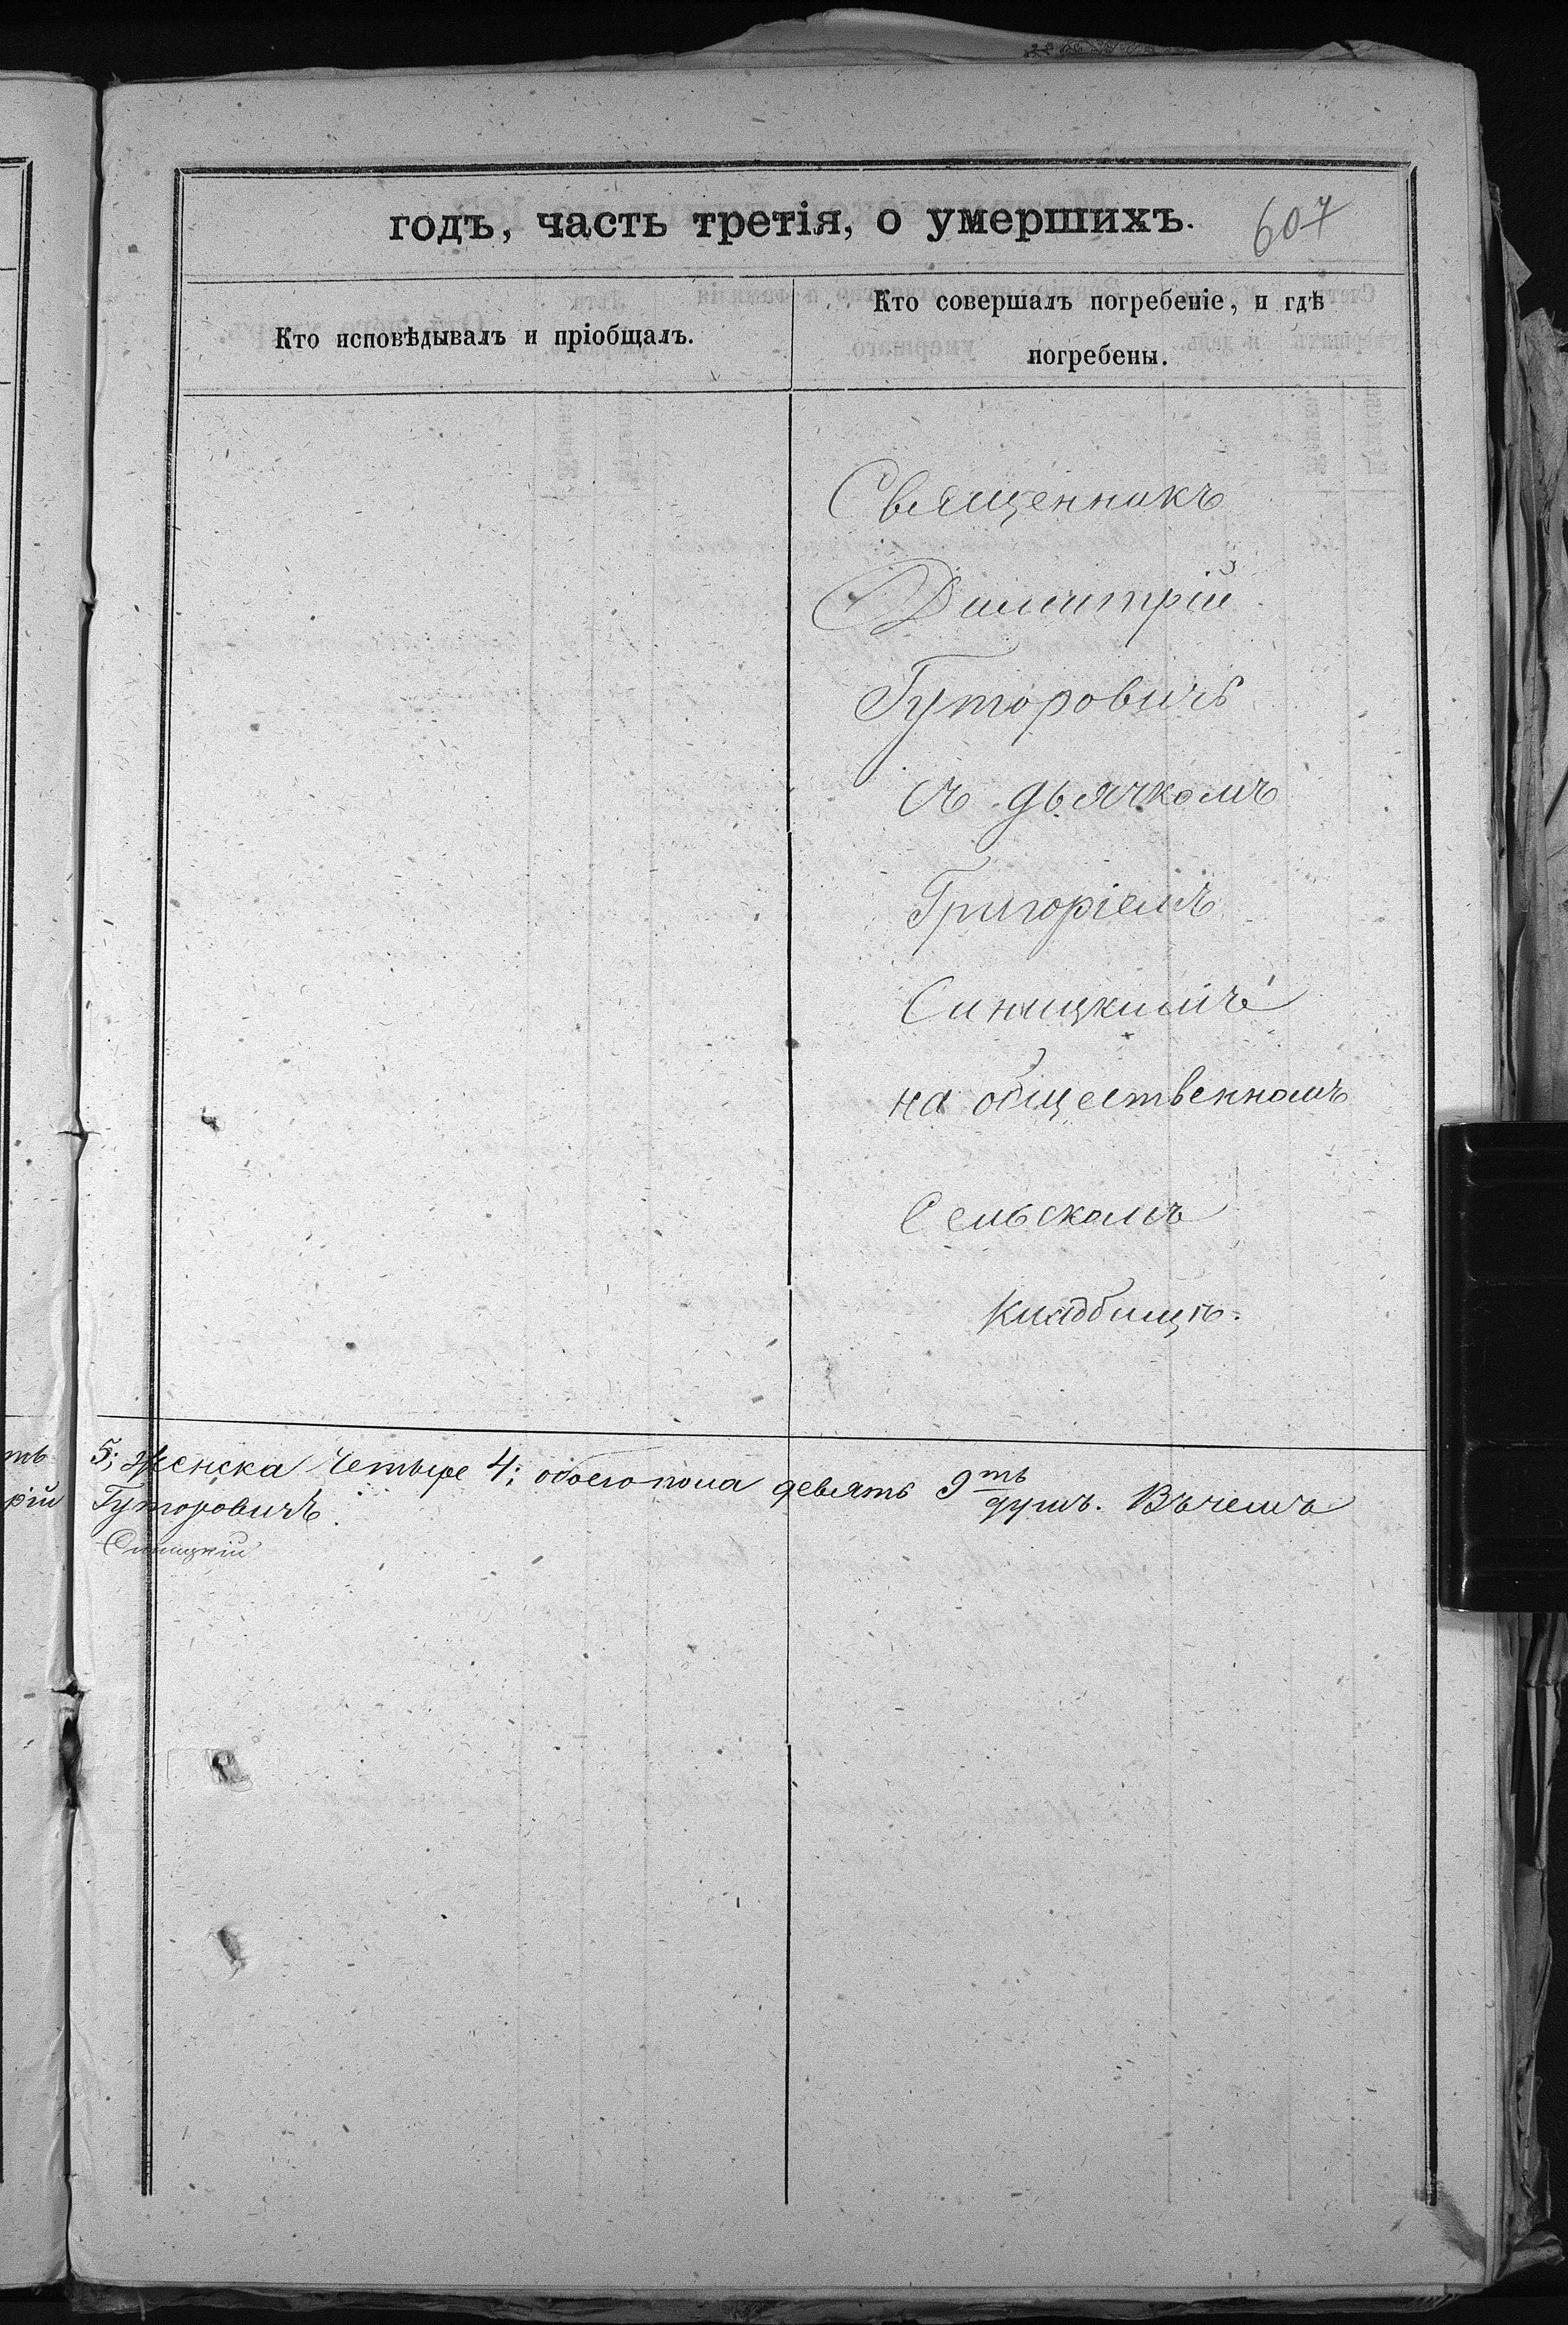 годъ, часть третія, о умершихъ.
607
Кто исповѣдывалъ и пріобщалъ.
Кто совершалъ погребеніе, и гдѣ
погребены.
Священникъ
Димитрій
Гуторовичъ
съ дьячкомъ
Григоріемъ
Синицкимъ
на общественномъ
Сельскомъ
кладбищѣ.
ть 5; женска четыре 4; обоего пола девять 9ть душъ. Въ чемъ
рій Гуторовичъ.
Синицкій